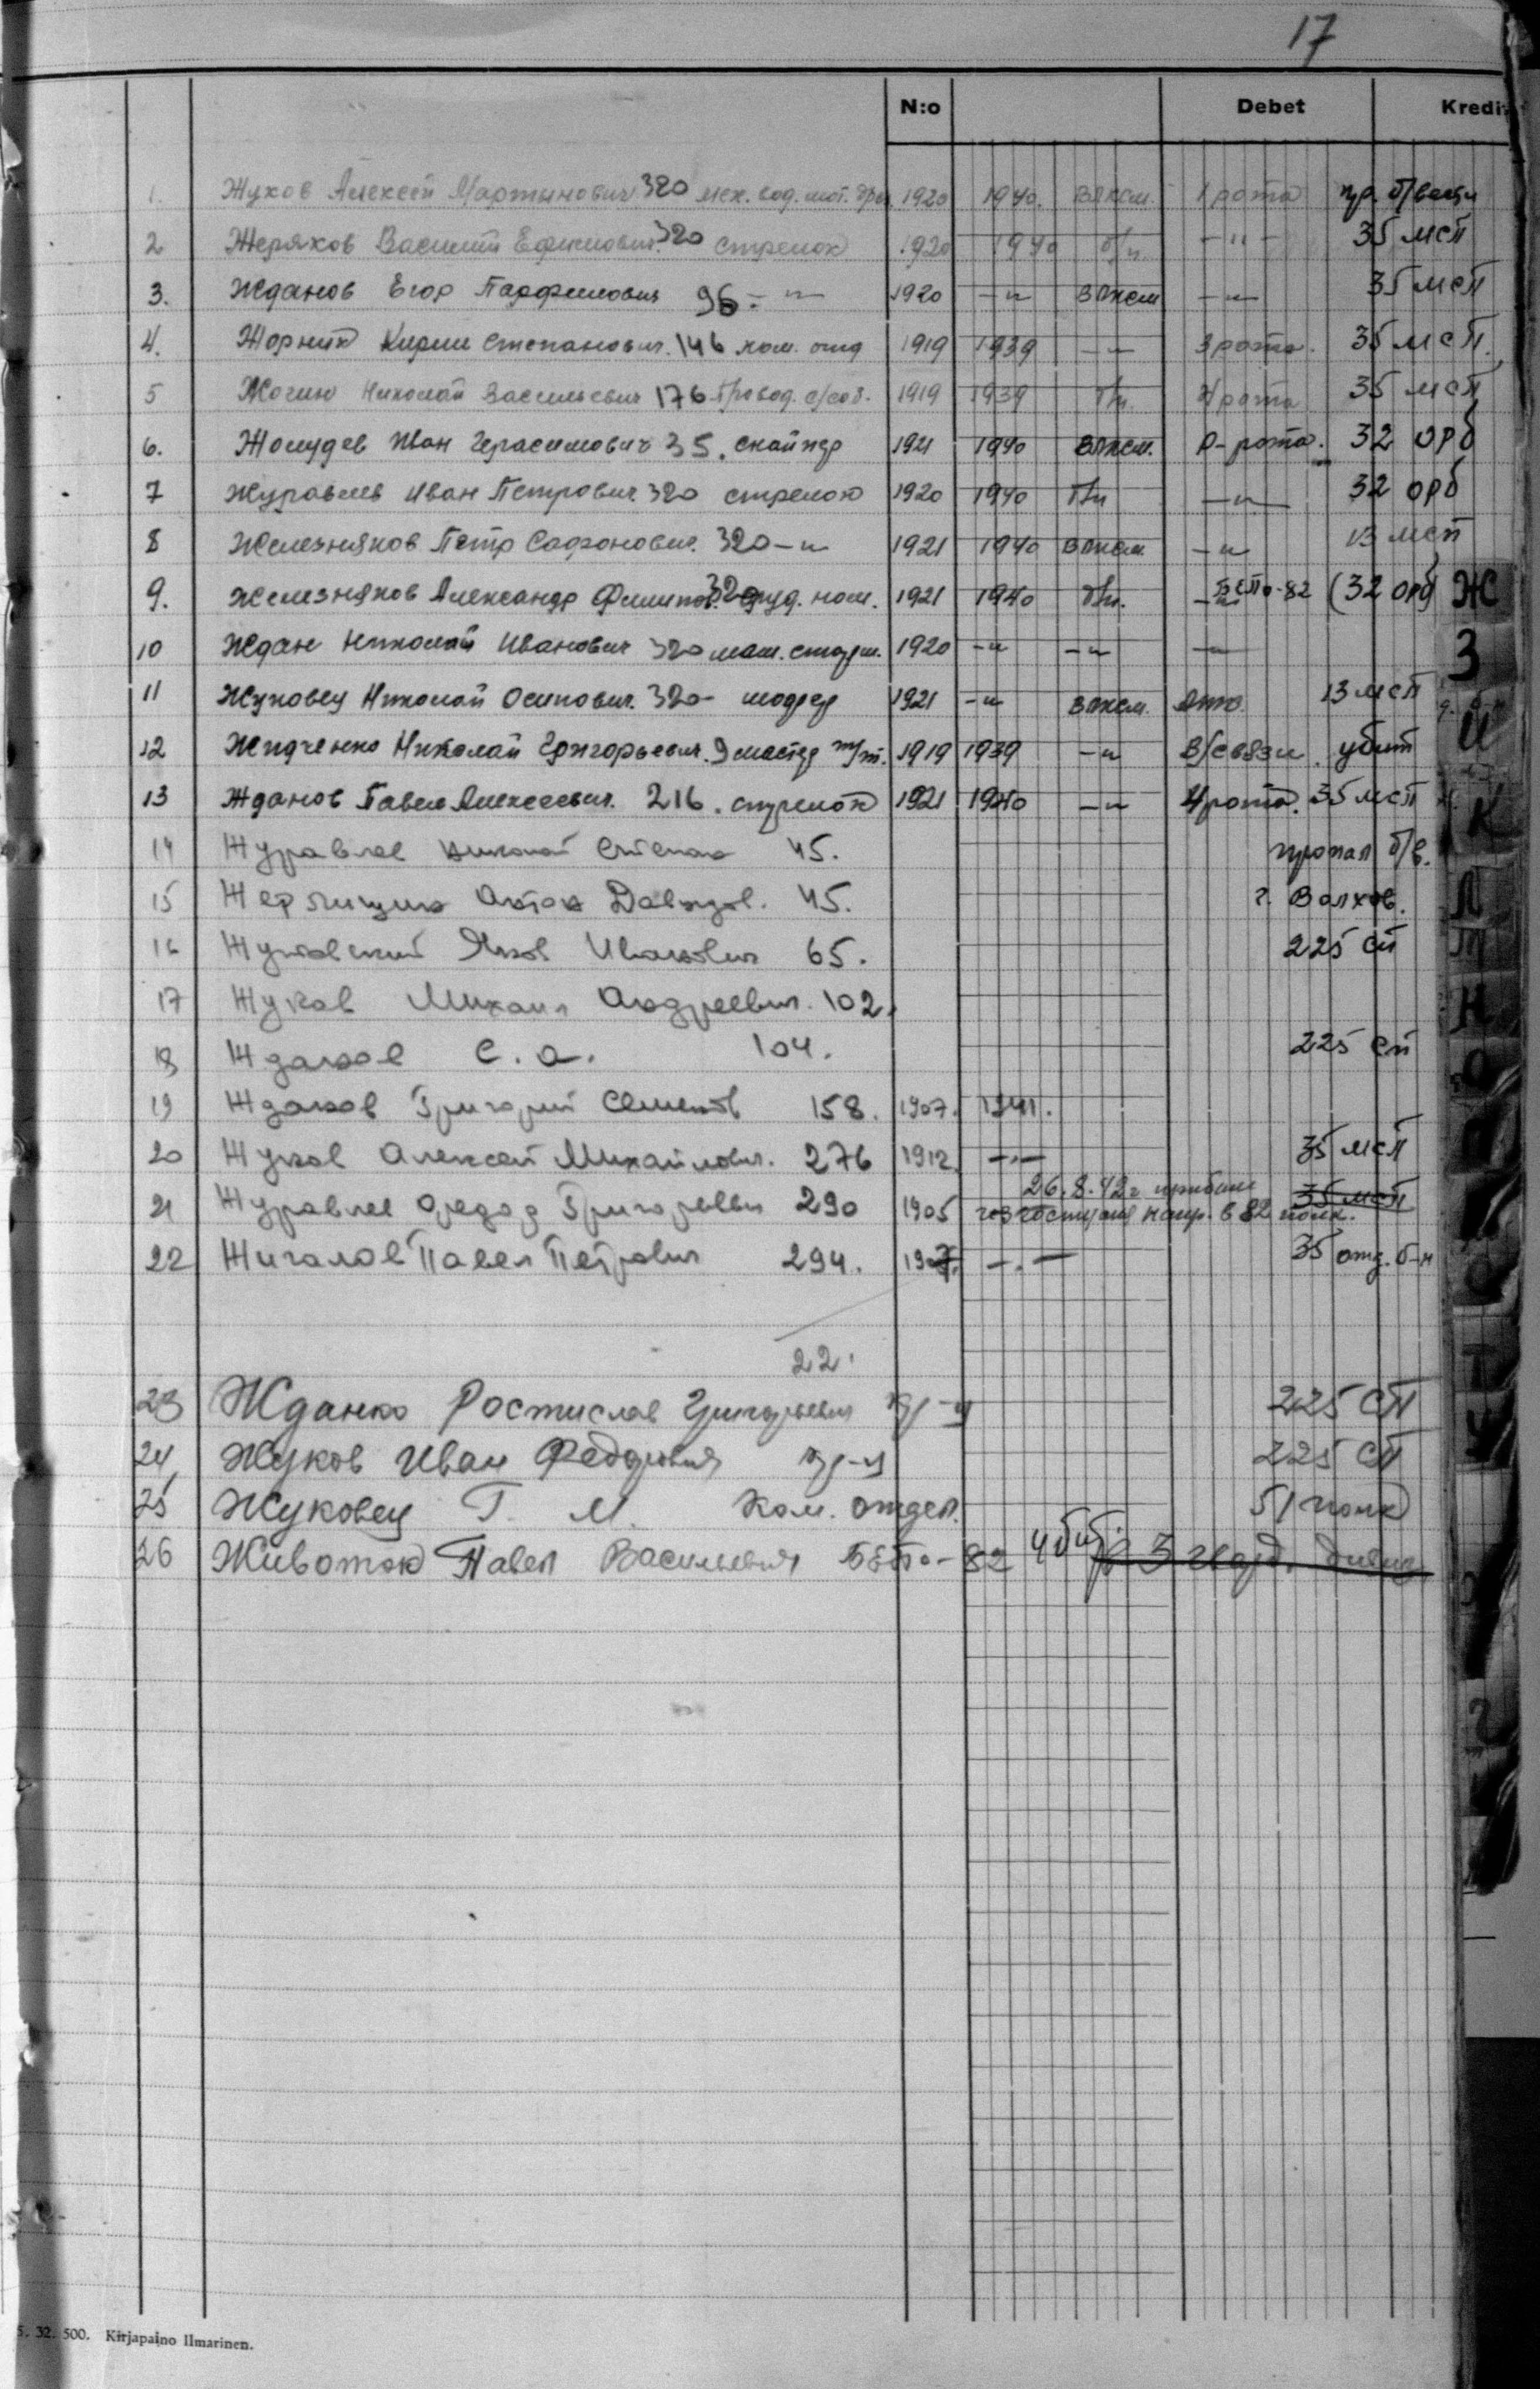 17
N:o Debet Kredit
1. Жуков Алексей Мартынович 320 мех. вод. 1920 1940. ВЛКСМ. 1 рота пр. б/вести
2 Жеряков Василий Ефимович 320 стрелок 1920 1940 б/п. -"- 35 мсп
3. Жданов Егор Парфенович 96 -"- 1920 -"- ВЛКСМ -"- 35 мсп
4. Жорник Кирил Степанович. 146 ком. отд 1919 1939 -"- 3 рота. 35 мсп.
5 Жогин Николай Васильевич 176 1919 1939 б/п. 4 рота 35 мсп
6. Жолудев Иван Герасимович 35. снайпер 1921 1940 ВЛКСМ. О-рота. 32 орб
7 Журавлев Иван Петрович. 320 стрелок 1920 1940 б/п -"- 32 орб
8 Железняков Петр Сафонович. 320 -"- 1921 1940 ВЛКСМ -"- 13 мсп
9. Железняков Александр Филипов. 320 ном. 1921 1940 б/п. -"- БЕПо-82 (32 орб
10 Ждан Николай Иванович 320 1920 -"- -"- -"-
11 Жуковец Николай Осипович. 320 - шофер 1921 -"- ВЛКСМ. Авто. 13 мсп
12 Жидченко Николай Григорьевич. 9 мастер т/т. 1919 1939 -"- В/связи. убит
13 Жданов Павел Алексеевич. 216. стрелок 1921 1940 -"- 4 рота. 35 мсп
14 Журавлев Николай Степан 45. пропал б/в.
15 Антон Давыдов. 45. г. Волхов.
16 Жуковский Яков Иванович 65. 225 сп
17 Жуков Михаил Андреевич. 102.
18 Жданов С. А. 104. 225 сп
19 Жданов Григорий Семенов 158. 1907. 1941.
20 Жуков Алексей Михайлович. 276 1912. -"- 35 мсп
26.8.42 г прибыл
21 Журавлев Федор Григорьевич 290 1905 из госпиталя напр. в 82 полк. 35 мсп
22 Жигалов Павел Петрович 294. 1907. -"- 35 отд. б-н
22.
23 Жданко Ростислав Григорьевич кр-ц 225 СП
24 Жуков Иван Федорович кр-ц 225 СП
25 Жуковец Г. М. Ком. отдел. 51 полк
26 Животок Павел Васильевич БЕПо-82 убит 3 гвард. дивиз.
Ж
З
И
К
Л
М
Н
О
П
Р
С
Т
У
5. 32. 500. Kirjapaino Ilmarinen.